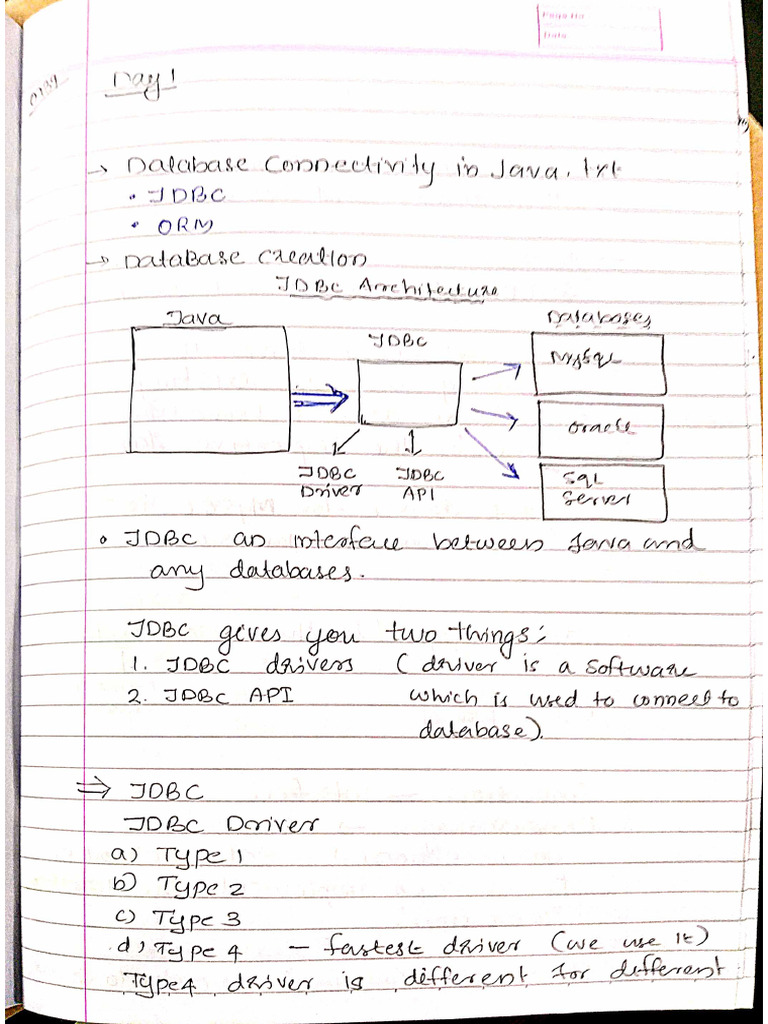 Page No
Date
Day 1
→ Database Connectivity in Java.txt
• JDBC
• ORM
→ Database Creation
JDBC Architecture
Java
JDBC
Databases
MySQL
Oracle
SQL
Server
JDBC
Driver
JDBC
API
• JDBC an interface between Java and
any databases.
JDBC gives you two things:
1. JDBC drivers (driver is a software
2. JDBC API which is used to connect to
database).
⇒ JDBC
JDBC Driver
a) Type 1
b) Type 2
c) Type 3
d) Type 4 — fastest driver (we use it)
Type4 driver is different for different